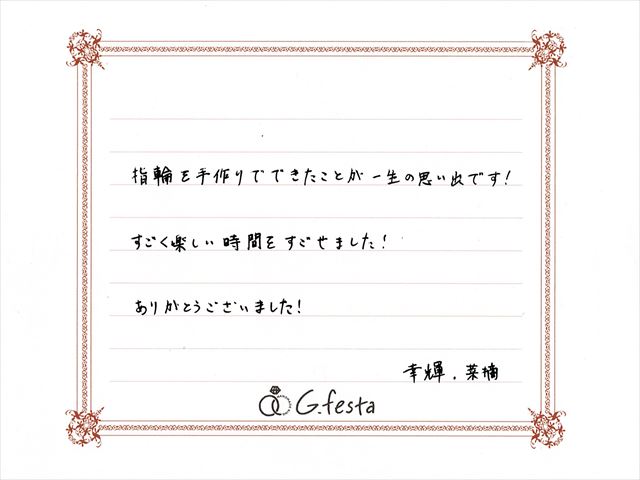 指輪を手作りでできたことが一生の思い出です!
すごく楽しい時間をすごせました!
ありがとうございました!
幸輝.菜摘
G.festa